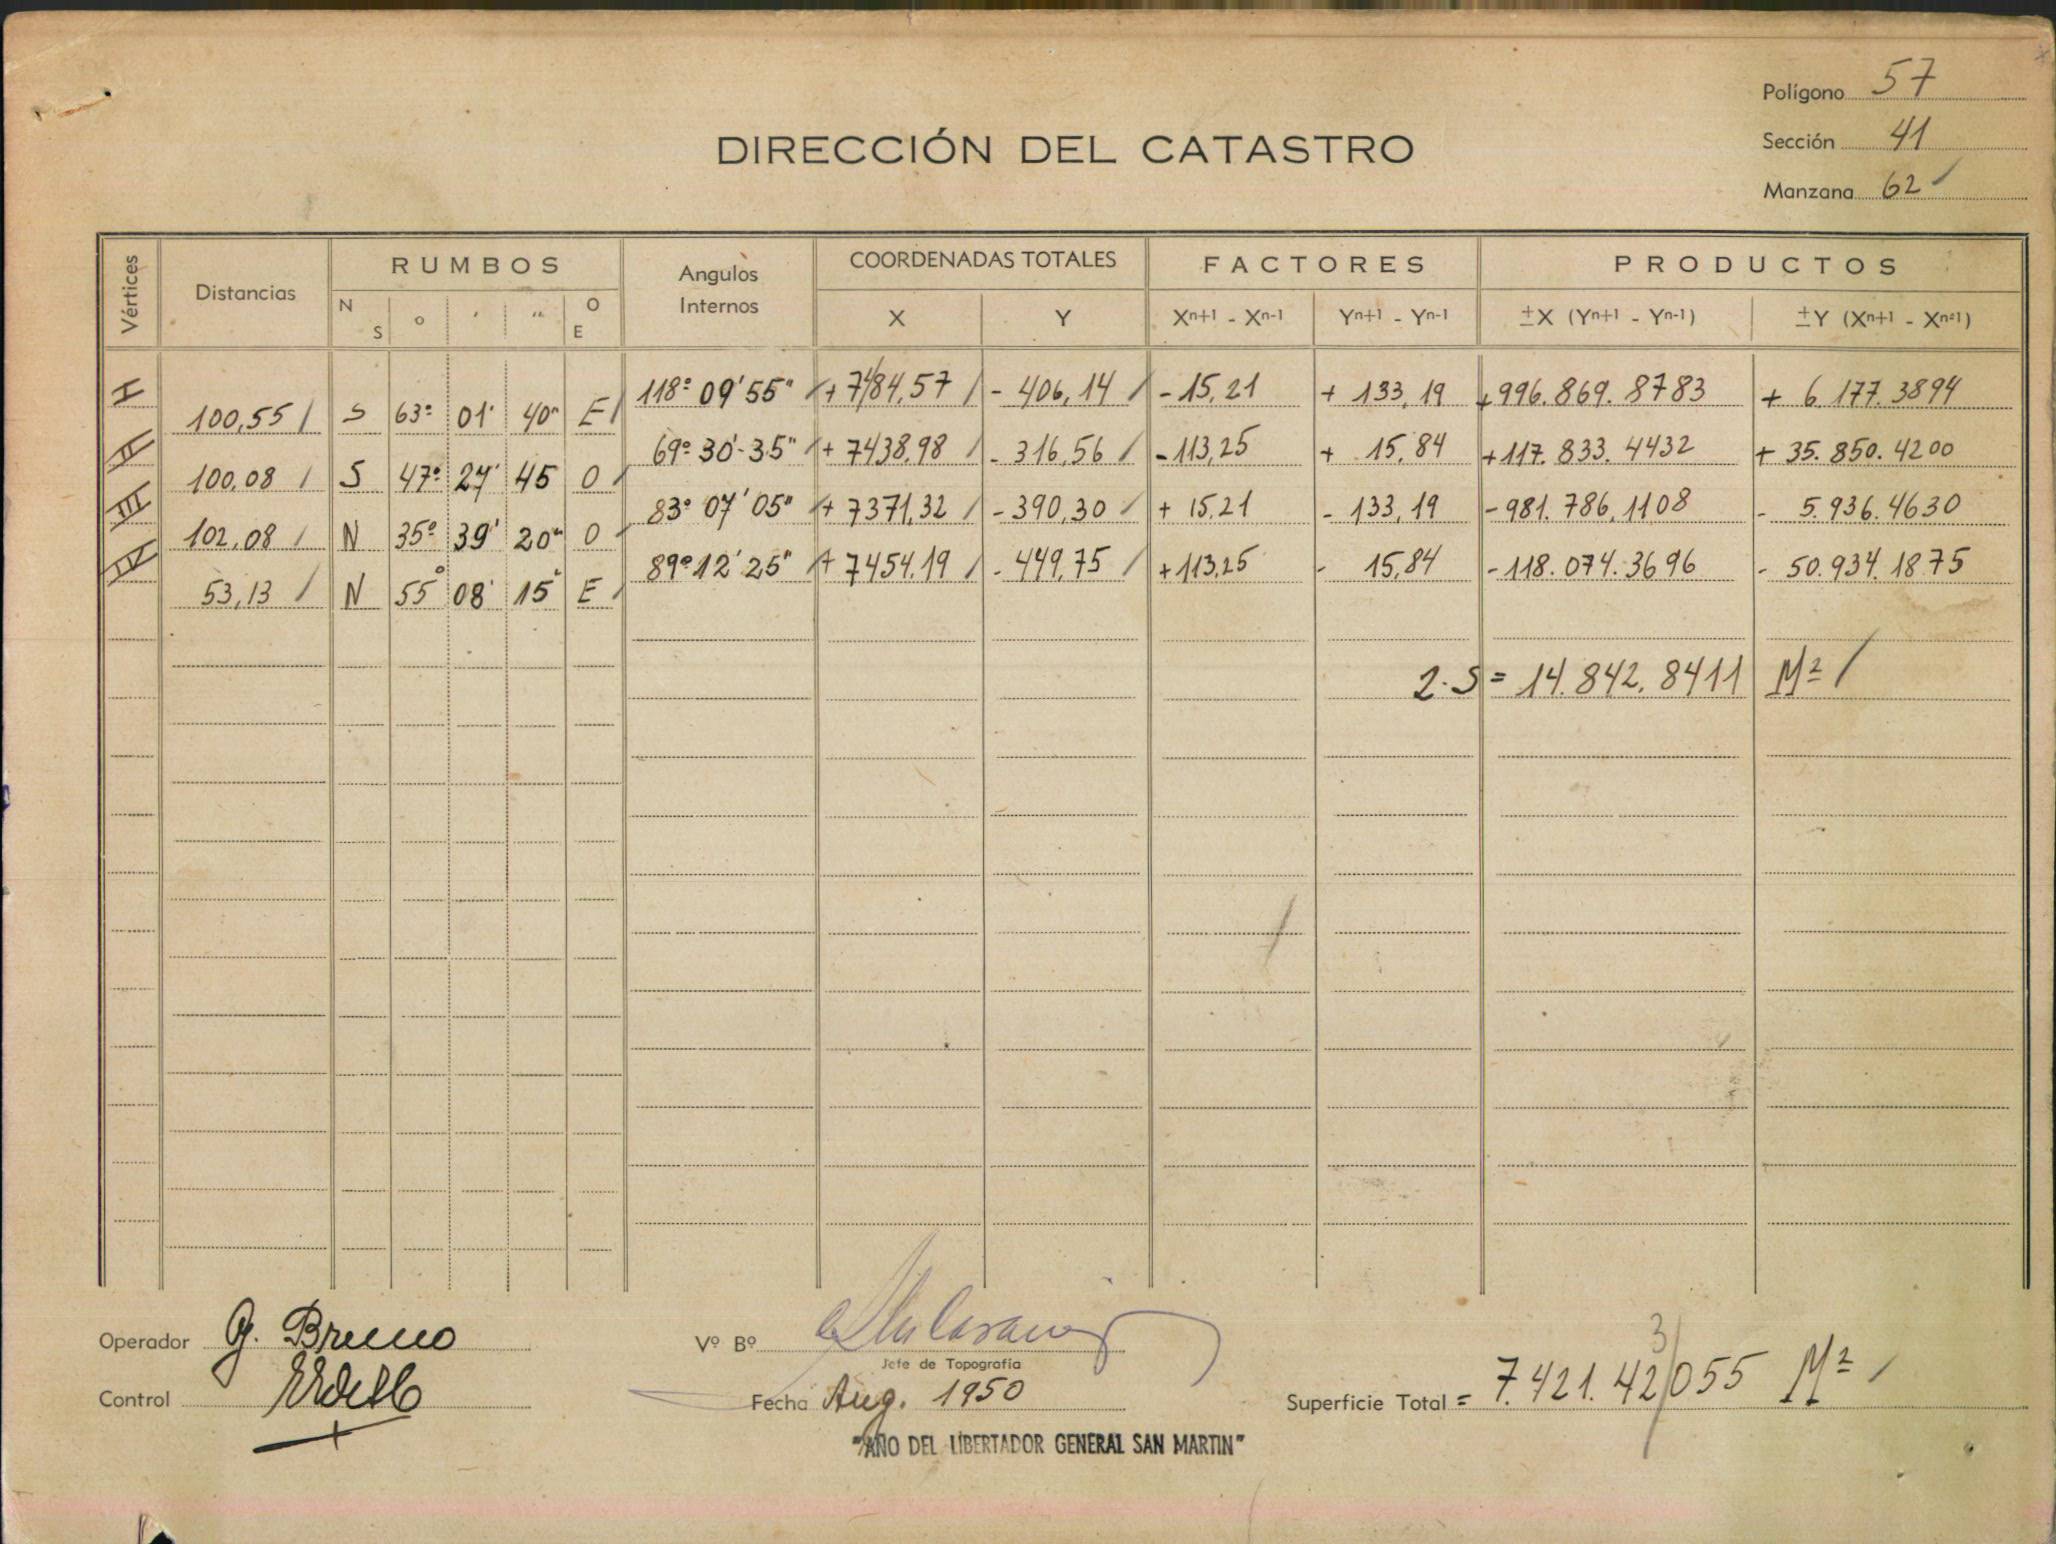 Polígono 57
DIRECCIÓN DEL CATASTRO
Sección 41
Manzana 62
Vértices Distancias RUMBOS Angulos Internos COORDENADAS TOTALES FACTORES PRODUCTOS
N S o ' " O E X Y Xn+1 - Xn-1 Yn+1 - Yn-1 ±X (Yn+1 - Yn-1) ±Y (Xn+1 - Xn-1)
I 118º 09' 55" +7484,57 - 406,14 - 15,21 + 133,19 +996.869.8783 + 6.177.3894
100,55 S 63º 01' 40" E
II 69º 30' 35" + 7438,98 - 316,56 - 113,25 + 15,84 +117.833.4432 + 35.850.4200
100,08 S 47º 27' 45 O
III 83º 07' 05" + 7371,32 - 390,30 + 15,21 - 133,19 - 981.786,1108 - 5.936.4630
102,08 N 35º 39' 20" O
IV 89º 12' 25" + 7454,19 - 449,75 +113,25 - 15,84 - 118.074.3696 - 50.934.1875
53,13 N 55º 08' 15" E
2·S = 14.842,8411 M²
Operador G. Bruno
Vº Bº
Jefe de Topografía
Control
Fecha Aug. 1950
Superficie Total = 7.421.42/055 M²
3
"AÑO DEL LIBERTADOR GENERAL SAN MARTIN"